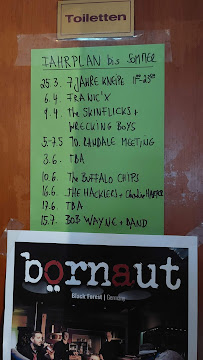 Toiletten
FAHRPLAN bis SOMMER
25.3. 7 JAHRE KNEIPE
6.4. FRANIC'X
9.4. the SKINFLICKS +
WRECKING BOYS
5.-7.5 10. RANDALE MEETING
3.6. TBA
10.6. the BUFFALO CHIPS
16.6. THE HACKLERS +
17.6. TBA
15.7. 303 WAYNE + BAND
bornaut
Black Forest | Germany